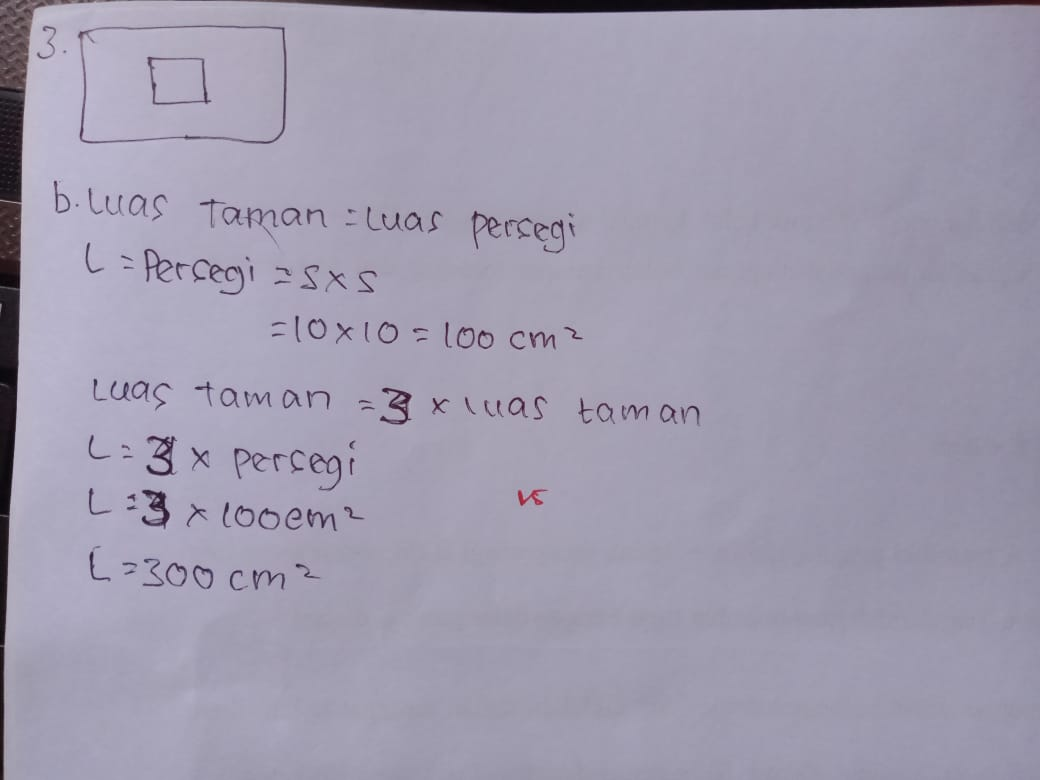 3.
b. Luas Taman = Luas persegi
L = Persegi = s x s
= 10 x 10 = 100 cm²
Luas taman = 3 x luas taman
L = 3 x persegi
L = 3 x 100 cm²
L = 300 cm²